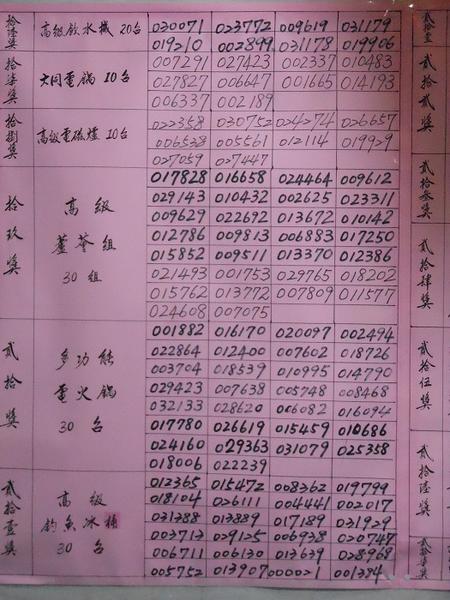 拾陸獎 高級飲水機 20台 030071 023772 009619 031179
019210 002899 031178 019906
拾柒獎 大同電鍋 10台 007291 027423 002337 010483
027827 006647 001665 014193
006337 002189
拾捌獎 高級電磁爐 10台 022358 030752 024274 026657
006538 005561 012114 019929
027059 027447
拾玖獎 高級蘆薈組 30組 017828 016658 024464 009612
029143 010432 002625 023311
009629 022692 013672 010142
012786 009813 006883 017250
015852 009511 013370 012386
021493 001753 029765 018202
015762 013772 007809 011577
024608 007075
貳拾獎 多功能電火鍋 30台 001882 016170 020097 002494
022864 012400 007602 018726
003704 018539 010995 014790
029423 007638 005748 008468
032133 028620 006082 016094
017780 026619 015459 010686
024160 029363 031079 025358
018006 022239
貳拾壹獎 高級釣魚冰桶 30台 012365 015472 008362 019799
018104 026111 004441 002017
031388 013889 017189 031929
003713 029125 006938 020747
006711 006130 013639 028968
005752 013907 000021 001384
貳拾貳獎
貳拾參獎
貳拾肆獎
貳拾伍獎
貳拾陸獎